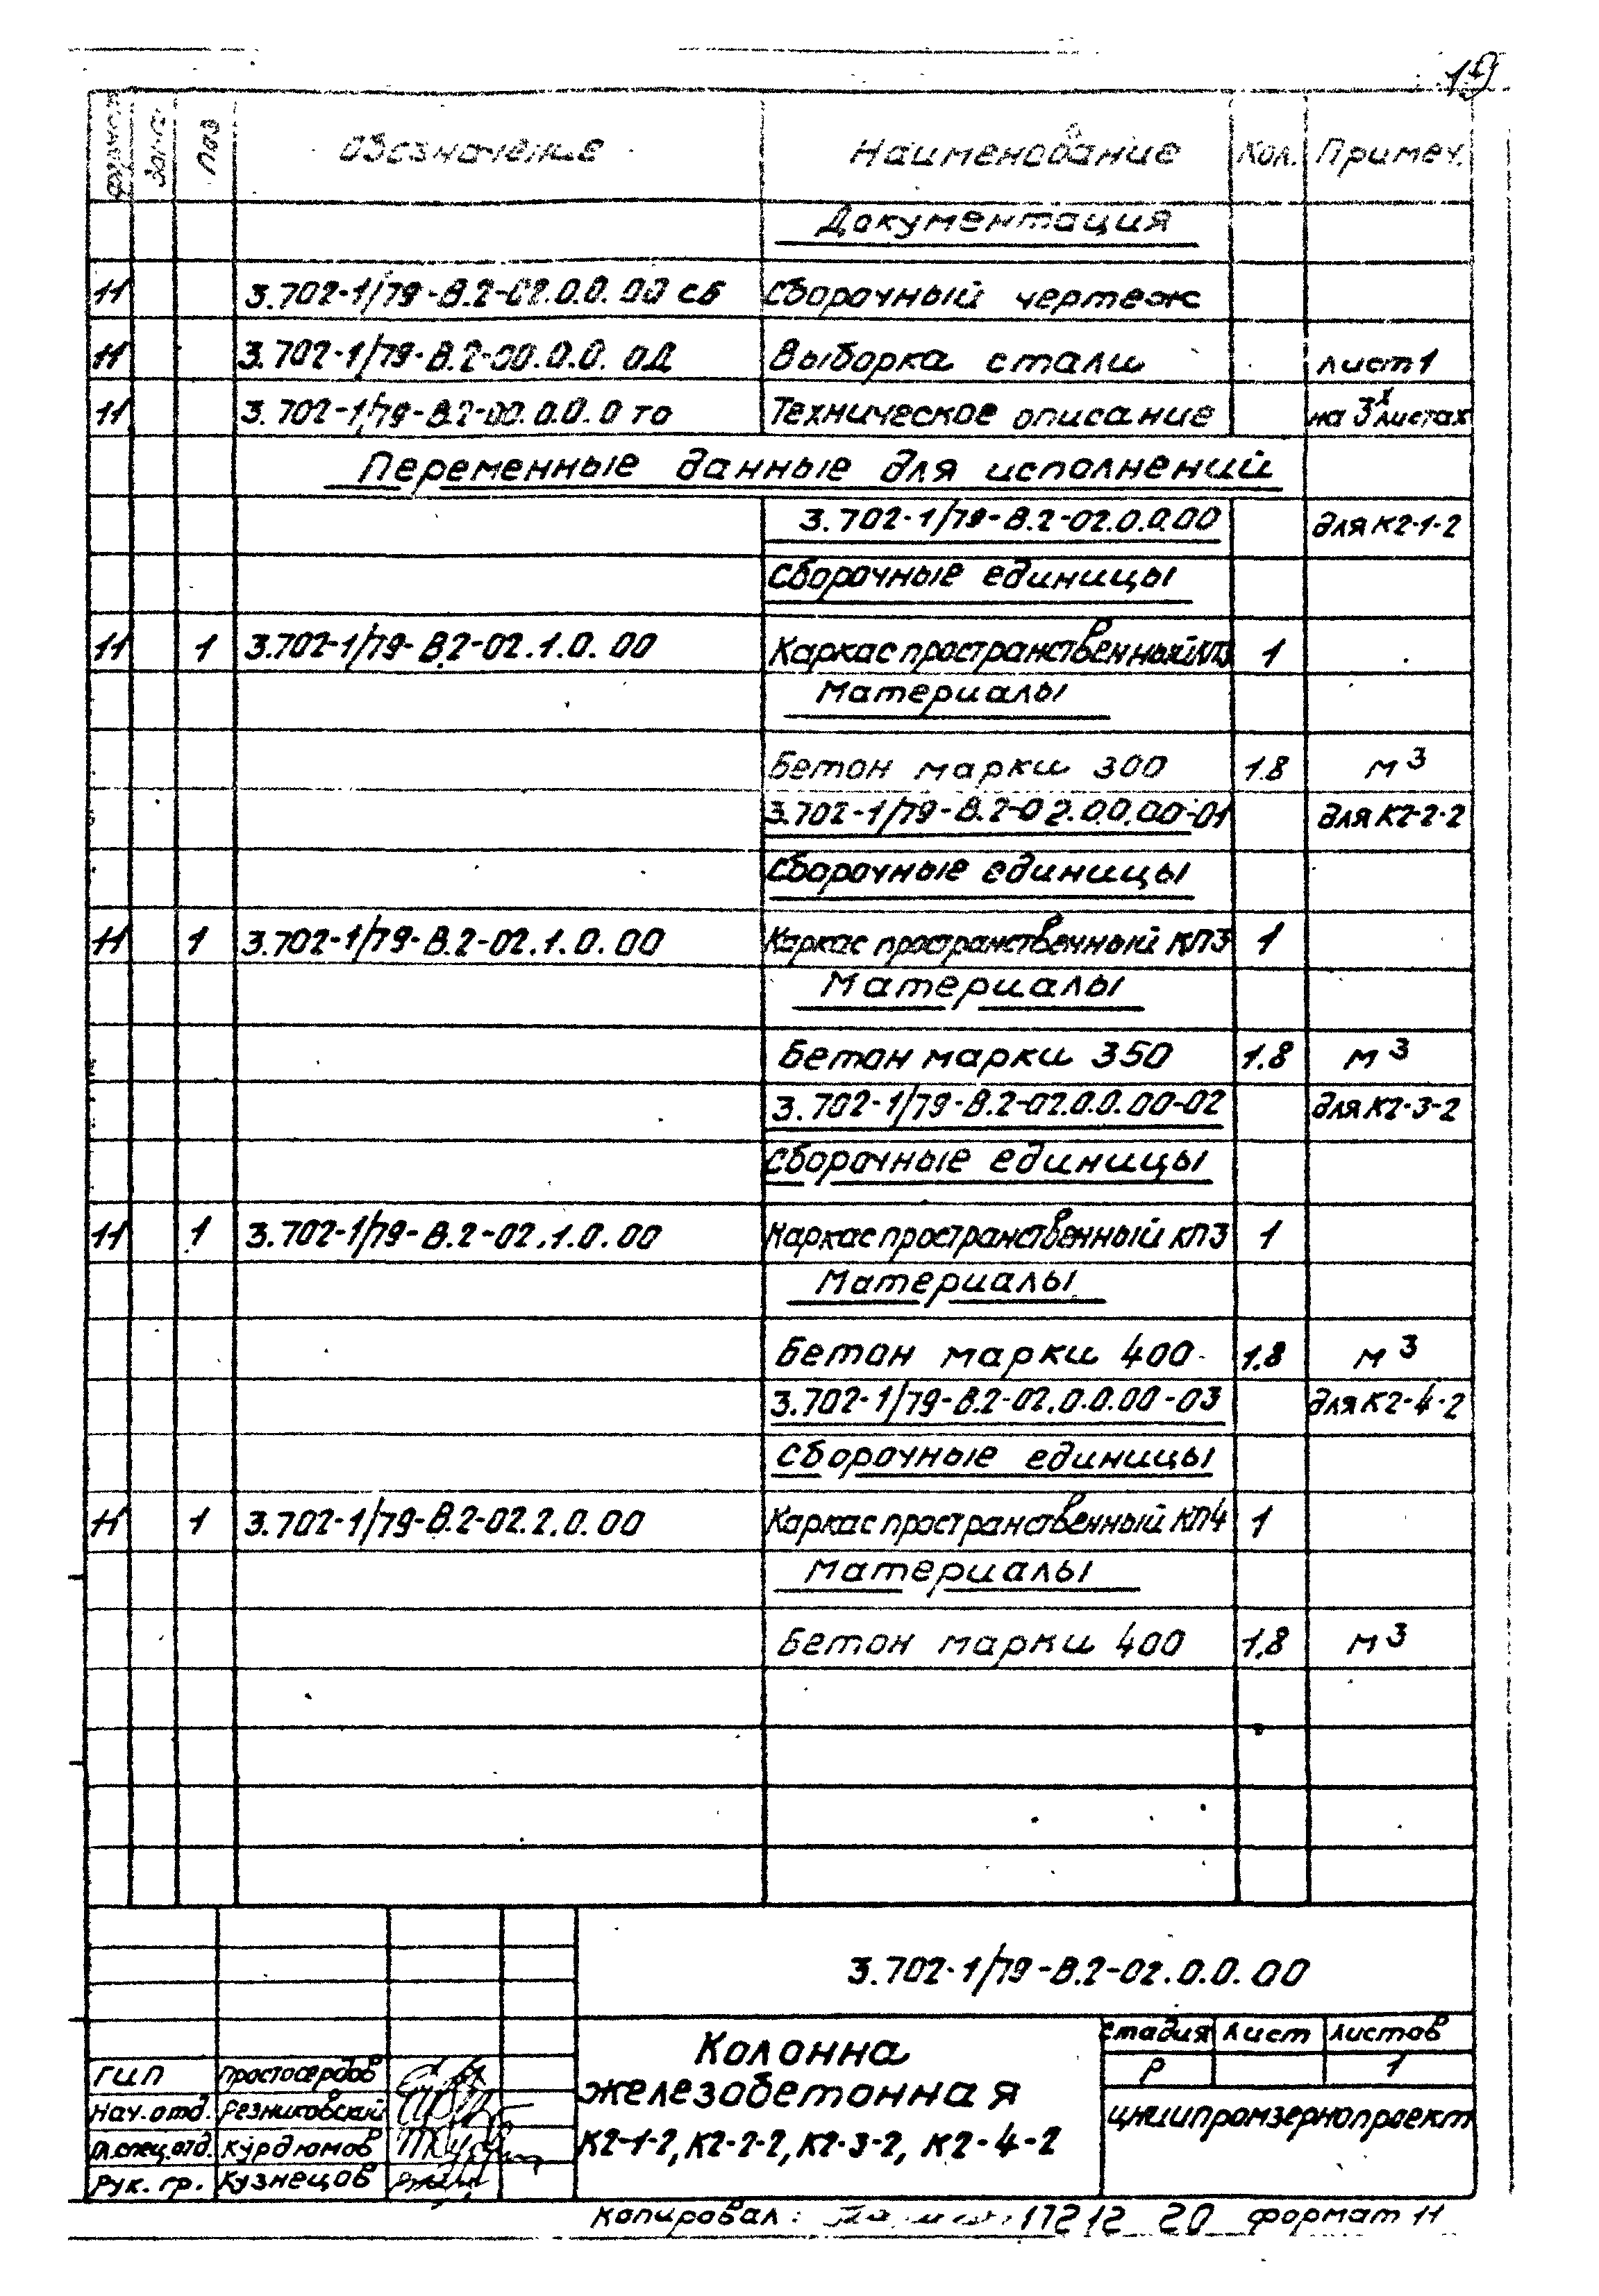 19
Формат Зона Поз Обозначение Наименование Кол. Примеч.
Документация
11 3.702-1/79-В.2-02.0.0.00 сб Сборочный чертеж
11 3.702-1/79-В.2-00.0.0.0Д Выборка стали лист 1
11 3.702-1/79-В.2-00.0.0.0 то Техническое описание на 3х листах
Переменные данные для исполнений
3.702-1/79-В.2-02.0.0.00 для К2-1-2
Сборочные единицы
11 1 3.702-1/79-В.2-02.1.0.00 Каркас пространственный КП3 1
Материалы
Бетон марки 300 1.8 м3
3.702-1/79-В.2-02.0.0.00-01 для К2-2-2
Сборочные единицы
11 1 3.702-1/79-В.2-02.1.0.00 Каркас пространственный КП3 1
Материалы
Бетон марки 350 1.8 м3
3.702-1/79-В.2-02.0.0.00-02 для К2-3-2
Сборочные единицы
11 1 3.702-1/79-В.2-02.1.0.00 Каркас пространственный КП3 1
Материалы
Бетон марки 400 1.8 м3
3.702-1/79-В.2-02.0.0.00-03 для К2-4-2
Сборочные единицы
11 1 3.702-1/79-В.2-02.2.0.00 Каркас пространственный КП4 1
Материалы
Бетон марки 400 1.8 м3
3.702-1/79-В.2-02.0.0.00
Колонна
железобетонная
К2-1-2, К2-2-2, К2-3-2, К2-4-2
Стадия Лист Листов
Р 1
ЦНИИпромзернопроект
ГИП Простосердов
Нач. отд. Резниковский
Гл. спец. отд. Курдюмов
Рук. гр. Кузнецов
Копировал: 17212 20 формат 11